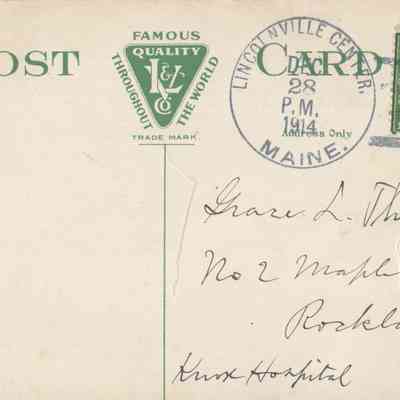 OST CARD
FAMOUS
QUALITY
L&Z
CO
THROUGHOUT THE WORLD
TRADE MARK
LINCOLNVILLE CENTER.
DEC
28
P.M.
1914
MAINE.
Address Only
Grace L. Th
No 2 Maple
Rockl
Knox Hospital